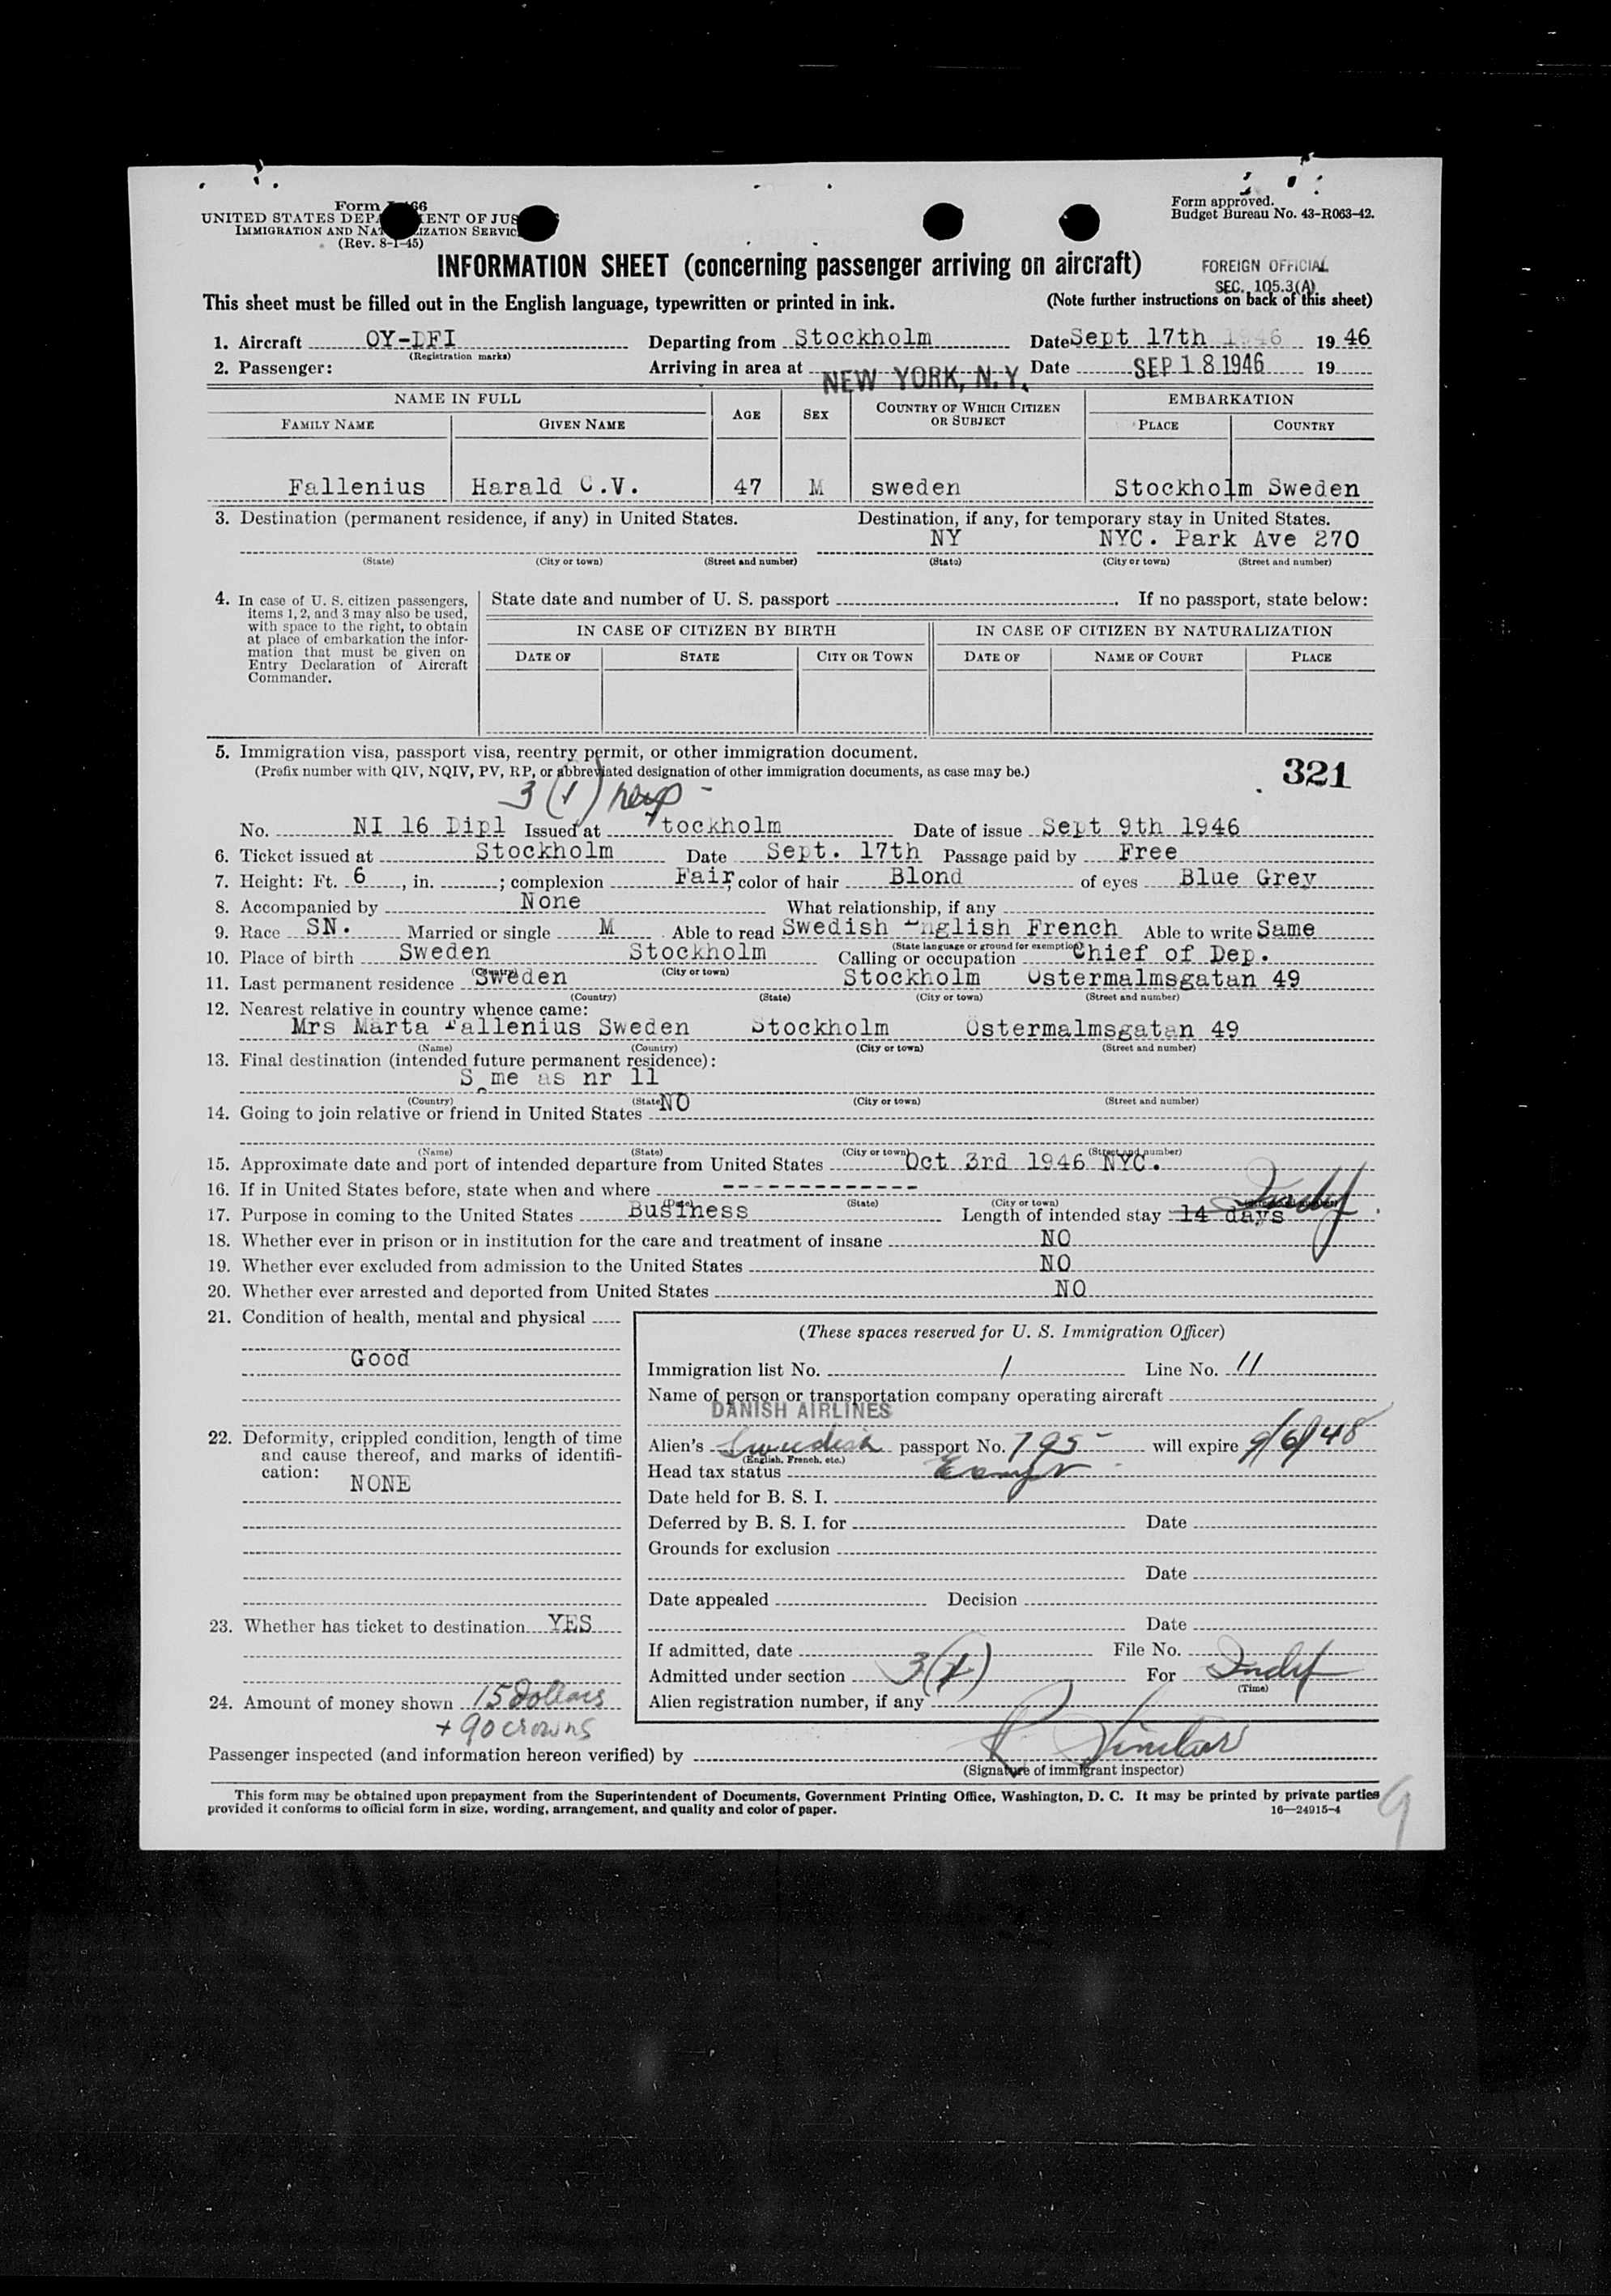 Form 66
UNITED STATES DEPARTMENT OF JUS
IMMIGRATION AND NATURALIZATION SERVIC
(Rev. 8-1-45)
Form approved.
Budget Bureau No. 43-R063-42.
INFORMATION SHEET (concerning passenger arriving on aircraft)
FOREIGN OFFICIAL
SEC. 105.3(A)
This sheet must be filled out in the English language, typewritten or printed in ink.
(Note further instructions on back of this sheet)
1. Aircraft OY-DFI Departing from Stockholm Date Sept 17th 1946 19 46
(Registration marks)
2. Passenger: Arriving in area at NEW YORK, N.Y. Date SEP 18 1946 19
NAME IN FULL AGE SEX COUNTRY OF WHICH CITIZEN OR SUBJECT EMBARKATION
FAMILY NAME GIVEN NAME PLACE COUNTRY
Fallenius Harald C.V. 47 M sweden Stockholm Sweden
3. Destination (permanent residence, if any) in United States. Destination, if any, for temporary stay in United States.
NY NYC. Park Ave 270
(State) (City or town) (Street and number) (State) (City or town) (Street and number)
4. In case of U. S. citizen passengers, items 1, 2, and 3 may also be used, with space to the right, to obtain at place of embarkation the information that must be given on Entry Declaration of Aircraft Commander.
State date and number of U. S. passport If no passport, state below:
IN CASE OF CITIZEN BY BIRTH IN CASE OF CITIZEN BY NATURALIZATION
DATE OF STATE CITY OR TOWN DATE OF NAME OF COURT PLACE
5. Immigration visa, passport visa, reentry permit, or other immigration document.
(Prefix number with QIV, NQIV, PV, RP, or abbreviated designation of other immigration documents, as case may be.)
321
3 (1)
No. NI 16 Dipl Issued at tockholm Date of issue Sept 9th 1946
6. Ticket issued at Stockholm Date Sept. 17th Passage paid by Free
7. Height: Ft. 6, in. ; complexion Fair; color of hair Blond of eyes Blue Grey
8. Accompanied by None What relationship, if any
9. Race SN. Married or single M Able to read Swedish English French Able to write Same
(State language or ground for exemption)
10. Place of birth Sweden Stockholm Calling or occupation Chief of Dep.
(Country) (City or town)
11. Last permanent residence Sweden Stockholm Ostermalmsgatan 49
(Country) (State) (City or town) (Street and number)
12. Nearest relative in country whence came:
Mrs Marta Fallenius Sweden Stockholm Ostermalmsgatan 49
(Name) (Country) (City or town) (Street and number)
13. Final destination (intended future permanent residence):
S me as nr 11
(Country) (State) (City or town) (Street and number)
14. Going to join relative or friend in United States NO
(Name) (State) (City or town) (Street and number)
15. Approximate date and port of intended departure from United States Oct 3rd 1946 NYC.
16. If in United States before, state when and where ------------
(Date) (State) (City or town)
17. Purpose in coming to the United States Business Length of intended stay 14 days Indef
18. Whether ever in prison or in institution for the care and treatment of insane NO
19. Whether ever excluded from admission to the United States NO
20. Whether ever arrested and deported from United States NO
21. Condition of health, mental and physical
Good
22. Deformity, crippled condition, length of time and cause thereof, and marks of identification:
NONE
23. Whether has ticket to destination YES
24. Amount of money shown 15 Dollars
+ 90 crowns
(These spaces reserved for U. S. Immigration Officer)
Immigration list No. 1 Line No. 11
Name of person or transportation company operating aircraft
DANISH AIRLINES
Alien's Swedish passport No. 795 will expire 9/6/48
(English, French, etc.)
Head tax status
Date held for B. S. I.
Deferred by B. S. I. for Date
Grounds for exclusion
Date
Date appealed Decision
Date
If admitted, date File No.
Admitted under section 3(1) For Indef
(Time)
Alien registration number, if any
Passenger inspected (and information hereon verified) by
(Signature of immigrant inspector)
This form may be obtained upon prepayment from the Superintendent of Documents, Government Printing Office, Washington, D. C. It may be printed by private parties
provided it conforms to official form in size, wording, arrangement, and quality and color of paper. 16—24915-4
9